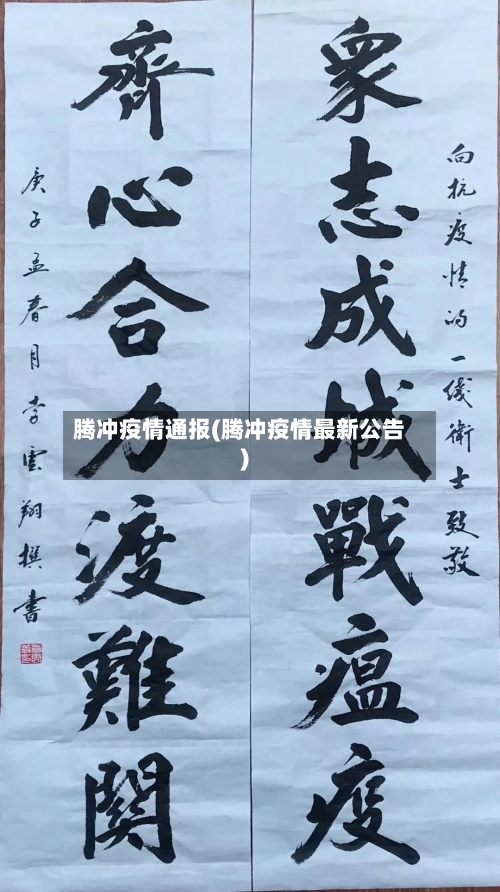 向抗疫情的一线衛士致敬
衆志成城戰瘟疫
齊心合力渡難關
庚子孟春月李雲翔撰書
腾冲疫情通报(腾冲疫情最新公告
)